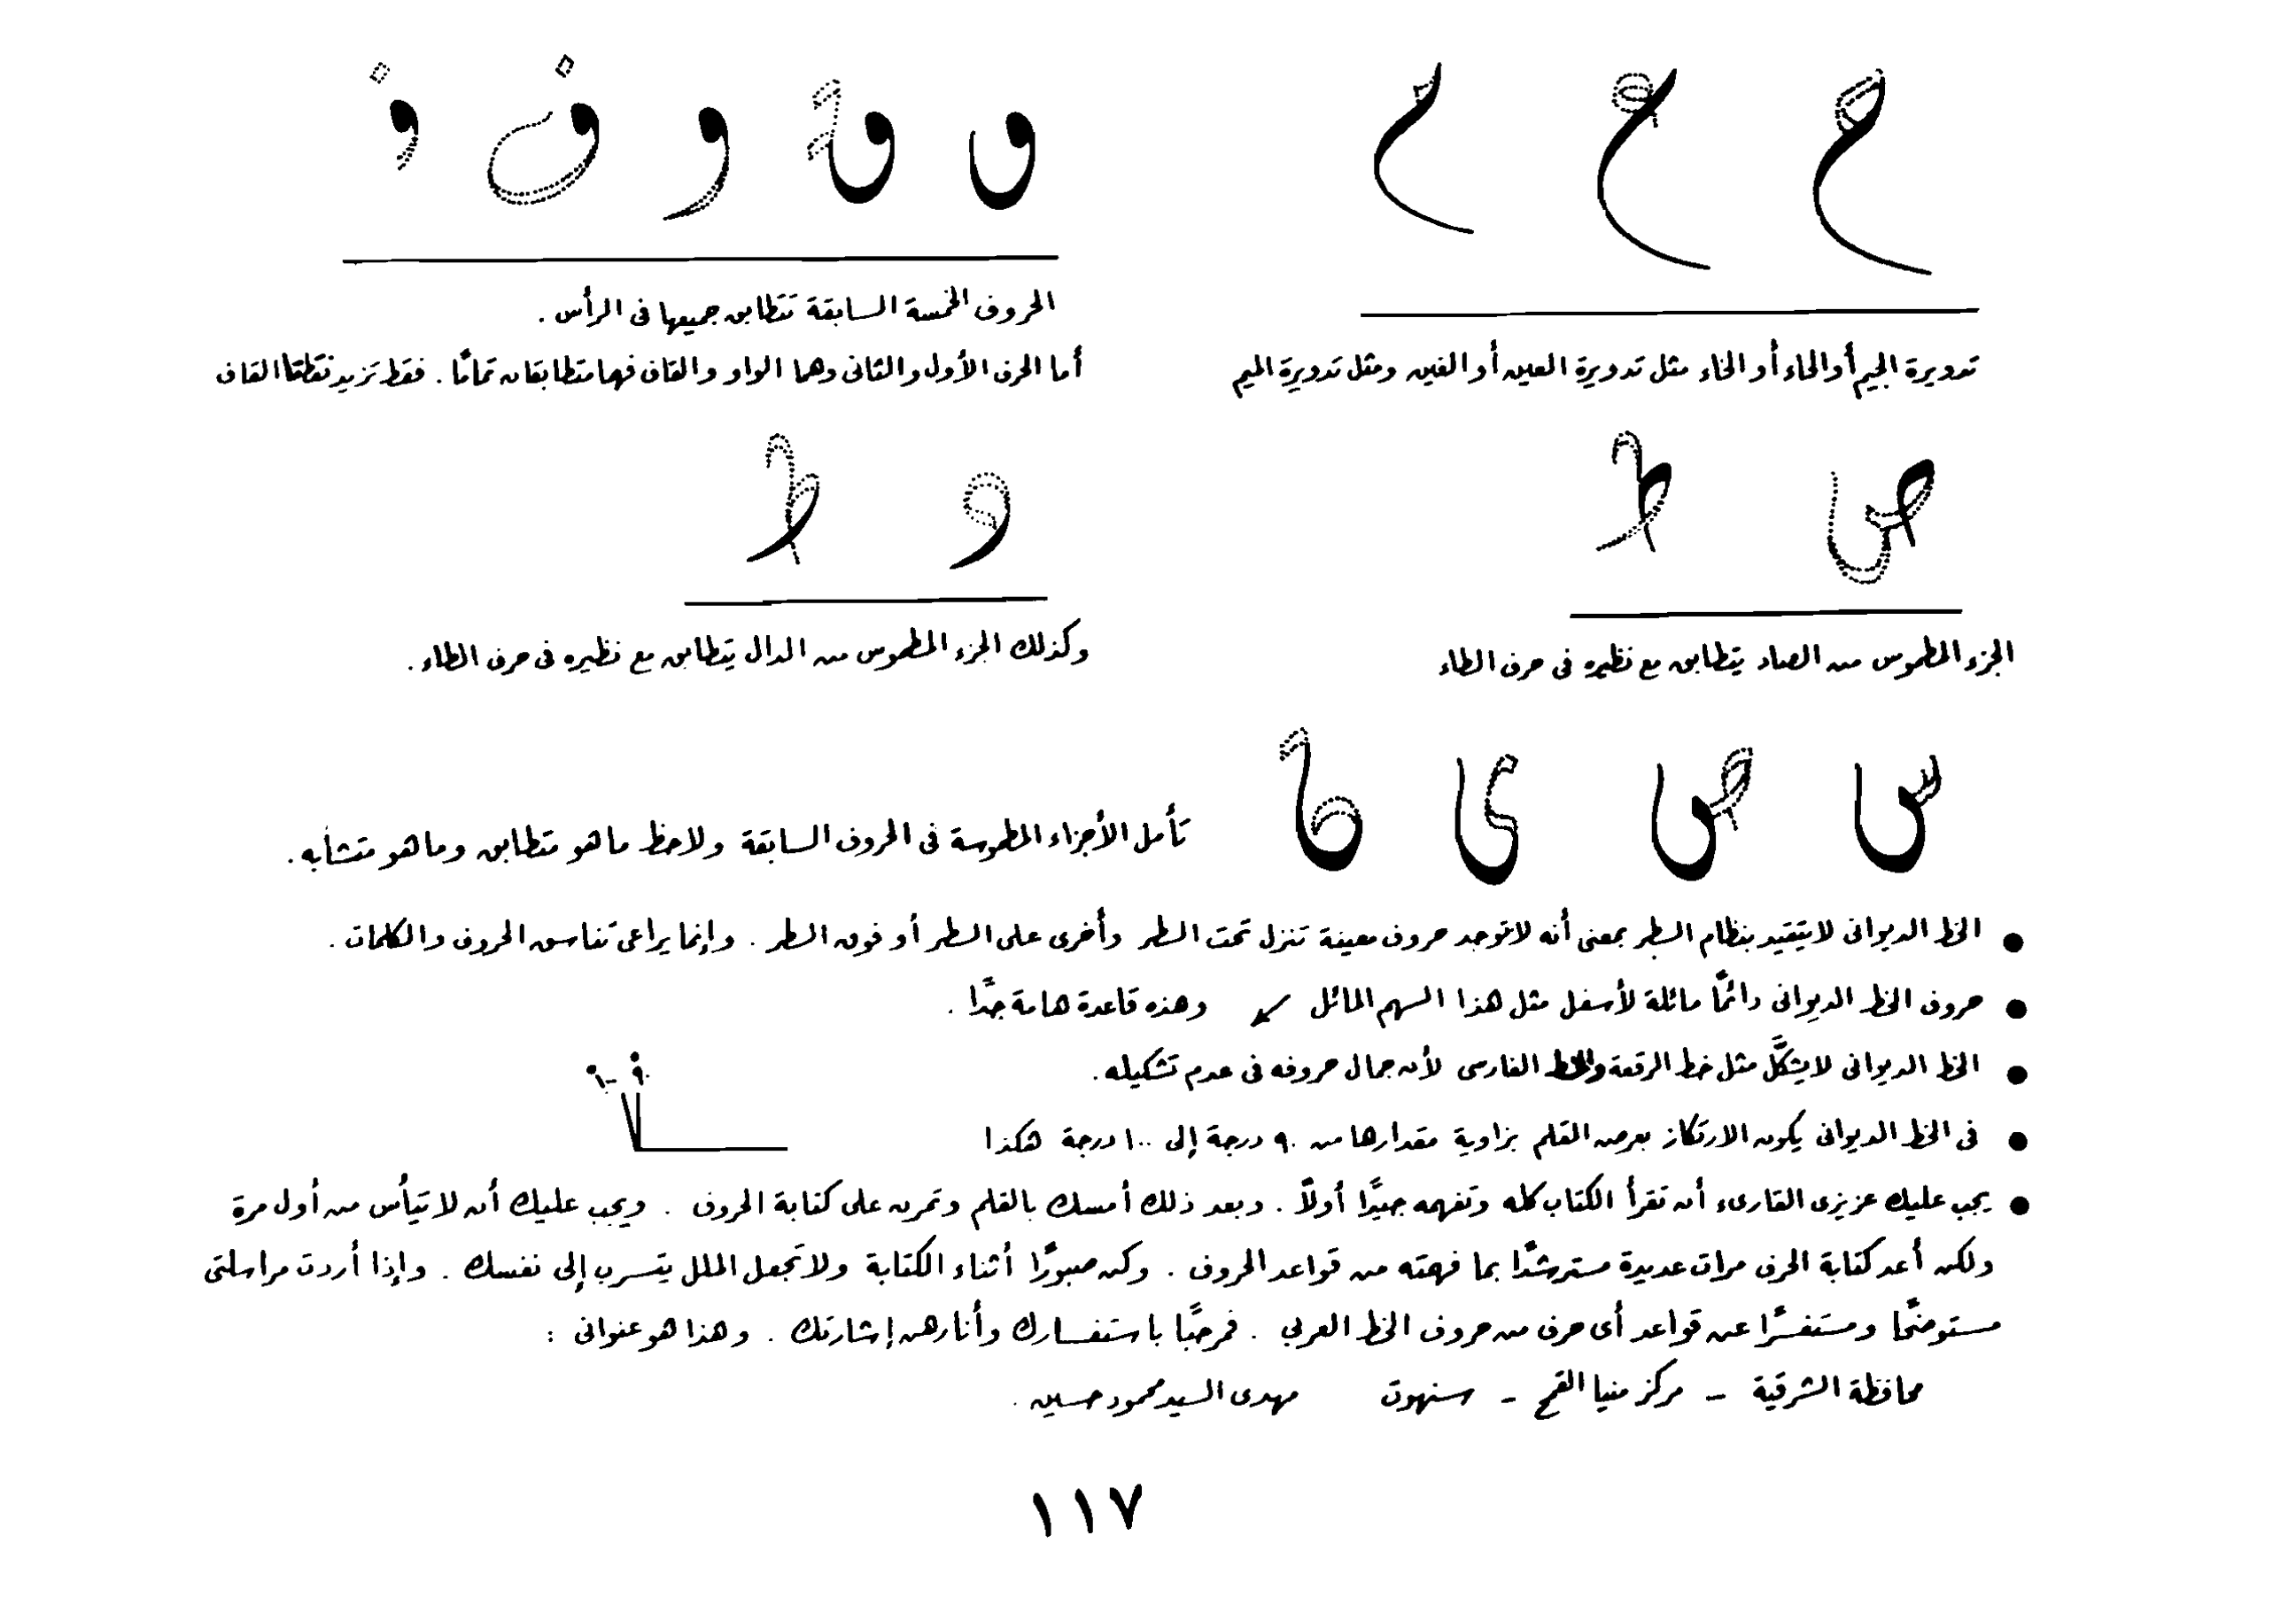 ح ع م
تدويرة الجيم أو الحاء أو الخاء مثل تدويرة العين أو الغين ومثل تدويرة الميم
الحروف الخمسة السابقة تتطابق جميعها فى الرأس .
أما الحرف الأول والثانى وهما الواو والقاف فهما متطابقان تمامًا . فقط تزيد نقطتا القاف
ص ط
الجزء المطموس من الصاد يتطابق مع نظيره فى حرف الطاء
وكذلك الجزء المطموس من الدال يتطابق مع نظيره فى حرف الطاء .
س ص ى
تأمل الأجزاء المطموسة فى الحروف السابقة ولاحظ ما هو متطابق وما هو متشابه .
● الخط الديوانى لا يتقيد بنظام السطر بمعنى أنه لا توجد حروف معينة تنزل تحت السطر وأخرى على السطر أو فوق السطر . وإنما يراعى تناسق الحروف والكلمات .
● حروف الخط الديوانى دائمًا مائلة لأسفل مثل هذا السهم المائل ↙ وهذه قاعدة هامة جدًا .
● الخط الديوانى لا يشكَّل مثل خط الرقعة والخط الفارسى لأن جمال حروفه فى عدم تشكيله .
● فى الخط الديوانى يكون الارتكاز بعرض القلم بزاوية مقدارها من ٩٠ درجة إلى ١٠٠ درجة هكذا
٩٠° ١٠٠°
● يجب عليك عزيزى القارىء أن تقرأ الكتاب كله وتفهمه جيدًا أولاً . وبعد ذلك أمسك بالقلم وتمرن على كتابة الحروف . ويجب عليك أن لا تيأس من أول مرة
ولكن أعد كتابة الحرف مرات عديدة مسترشدًا بما فهمته من قواعد الحروف . وكن صبورًا أثناء الكتابة ولا تجعل الملل يتسرب إلى نفسك . وإذا أردت مراسلتى
مستوضحًا ومستفسرًا عن قواعد أى حرف من حروف الخط العربي . فمرحبًا باستفسارك وأنا رهن إشارتك . وهذا هو عنوانى :
محافظة الشرقية - مركز منيا القمح - سنهوت مهدى السيد محمود حسين .
١١٧